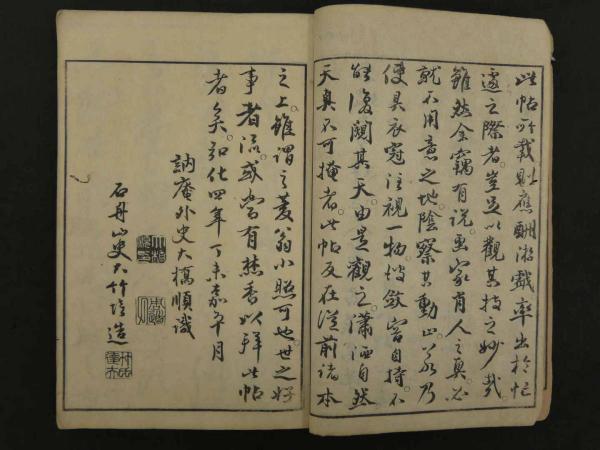 此帖所載則應酬游戲率出於忙
遽之際者豈足以觀其技之妙哉
雖然余竊有説焉畫家肖人之真必
就不用意之地陰察其動止若乃
使具衣冠注視一物竦斂容自持不
能復闚其天由是觀之瀟洒自然
天真不可掩者此帖反在從前諸本
之上雖謂之菱翁小照可也世之好
事者流或當有炷香以拜此帖
者矣弘化四年丁未嘉平月
訥庵外史大橋順識
石舟山史大竹培造